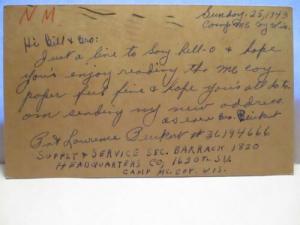 N M
Sunday, 25, 1943
Camp Mc Coy Wis.
Hi Bill & Bro:
Just a line to say hell-o & hope
you's enjoy reading the Mc coy
paper feel fine & hope you's all do to.
am sending my new address.
as ever Bro.
Pvt Lawrence #36194666
SUPPLY & SERVICE SEC. BARRACK 1820
HEADQUARTERS CO, 1620TH S.U.
CAMP MC.COY. WIS.